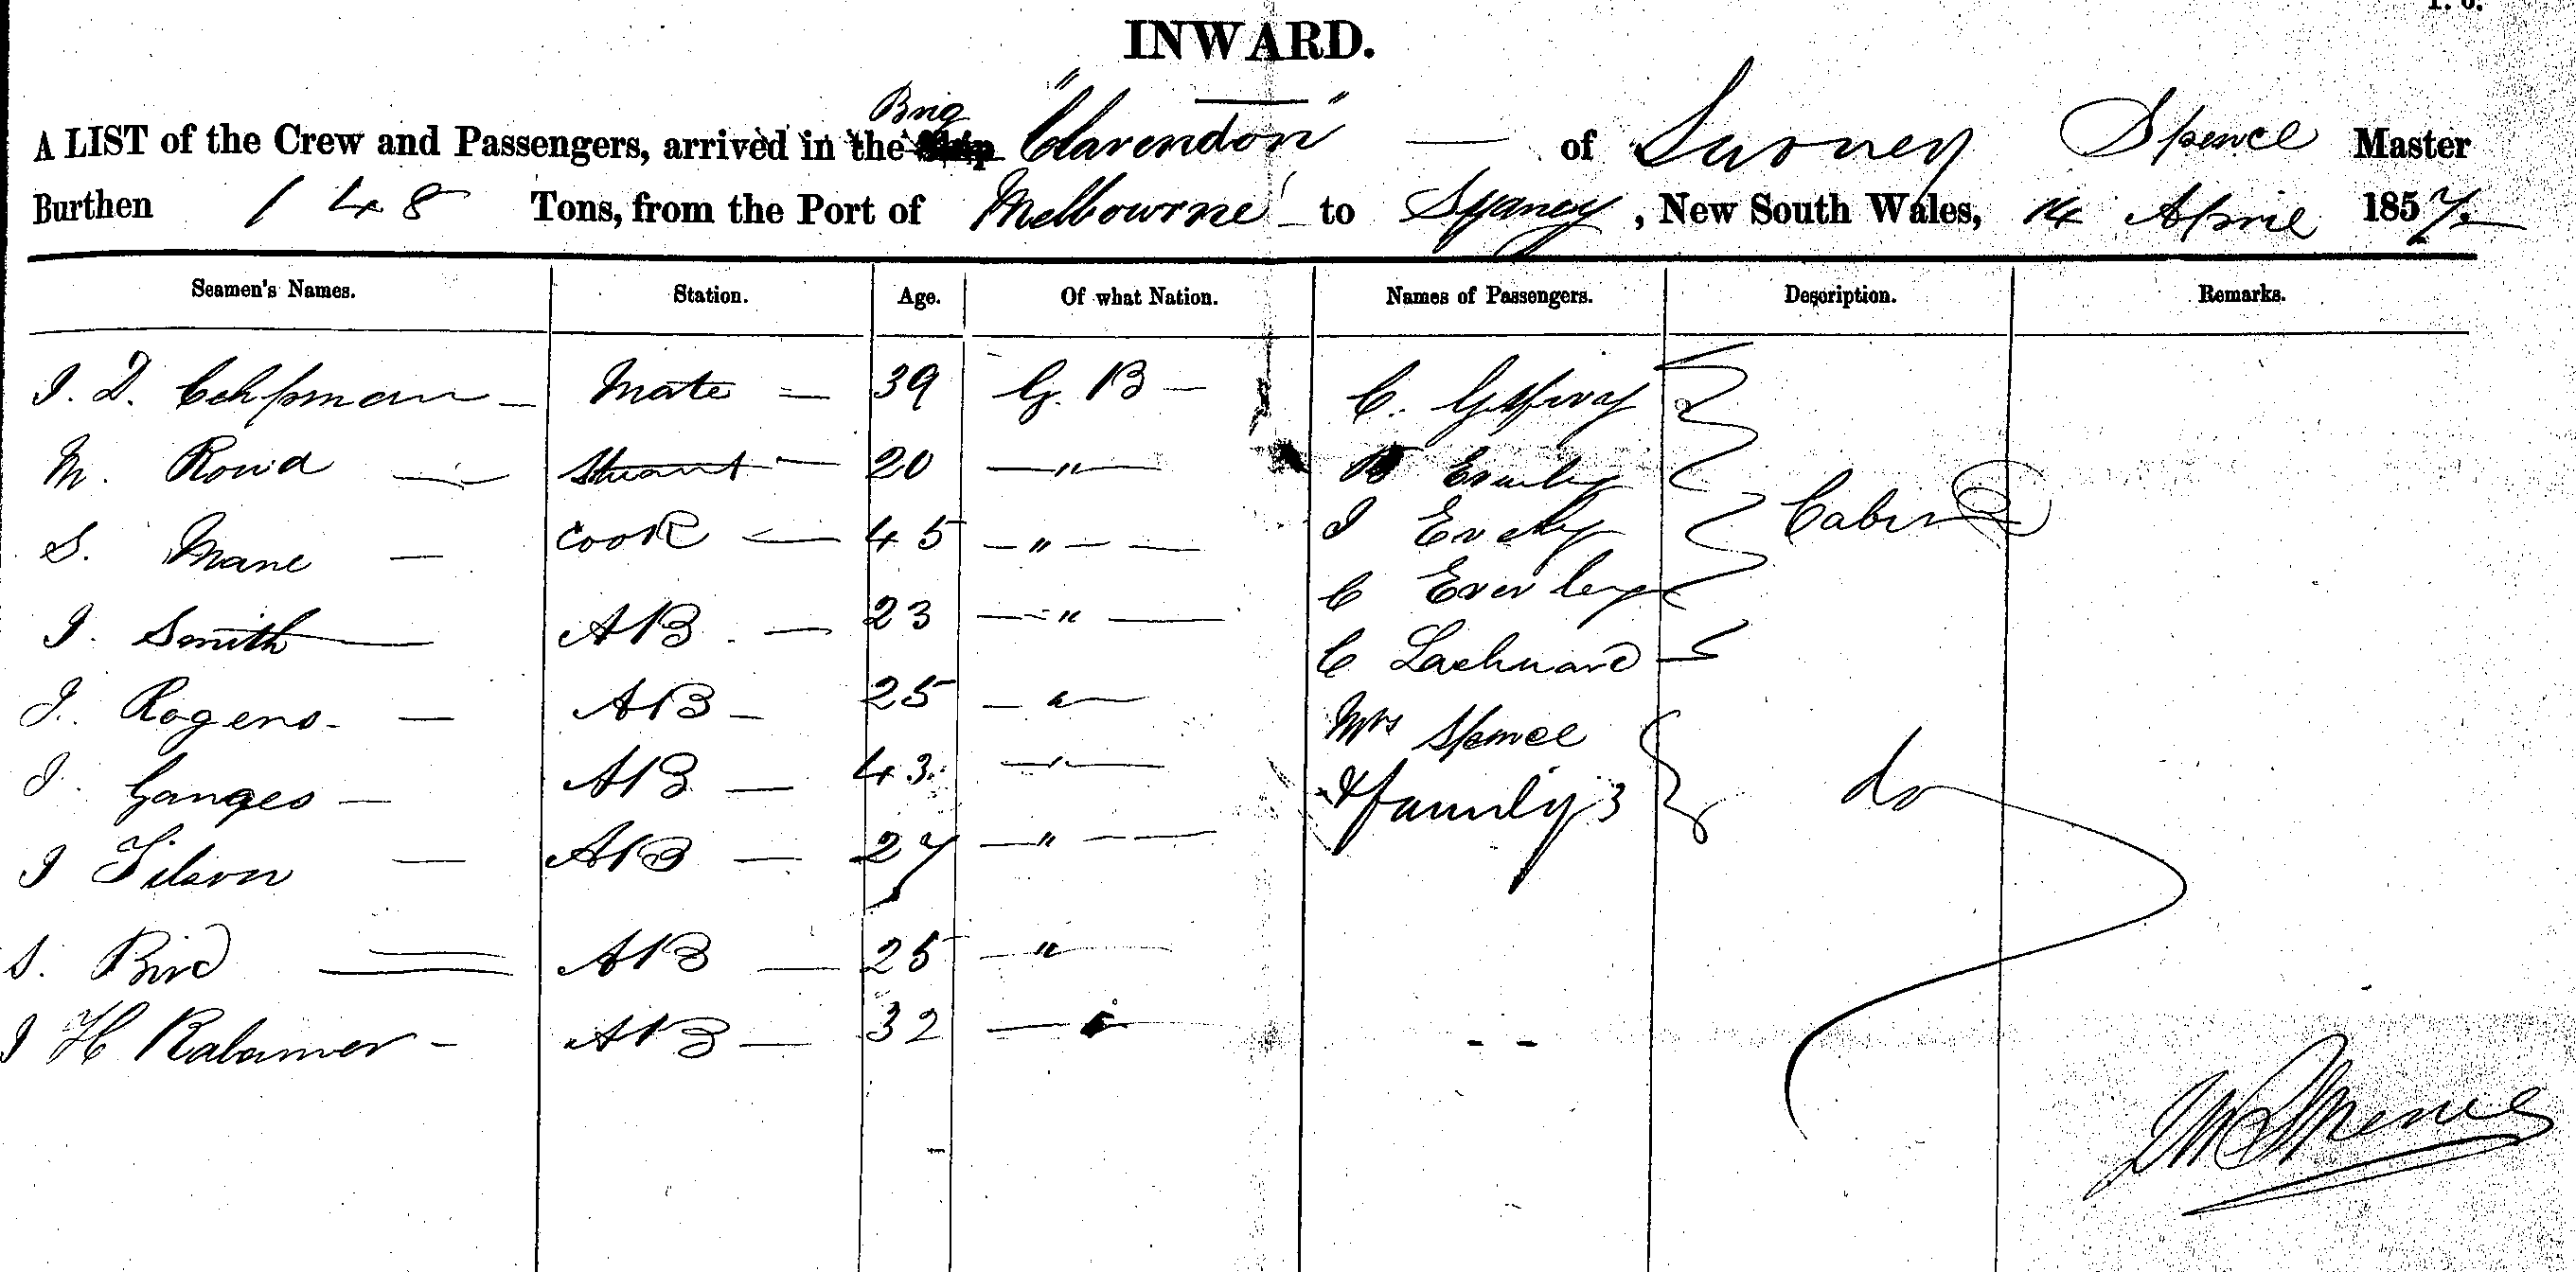 INWARD.
A LIST of the Crew and Passengers, arrived in the Brig "Clarendon" — of Surney Spence Master
Burthen 148 Tons, from the Port of Melbourne to Sydney, New South Wales, 14 April 1857.
Seamen's Names. Station. Age. Of what Nation. Names of Passengers. Description. Remarks.
J. D. Mate — 39 G. B — C.
M. — 20 — " — Everley
S. Mane — Cook — 45 — " — — J Everley Cabin
J. Smith — AB — 23 — " — C Everley
J. Rogers — AB — 25 — " — C
J. Ganges — AB — 43 — " — Mrs Spence
& family 3 do
J Tilson — AB — 27 — " — —
S. Bird — AB — 25 — " —
J H — AB — 32 — " —
Spence